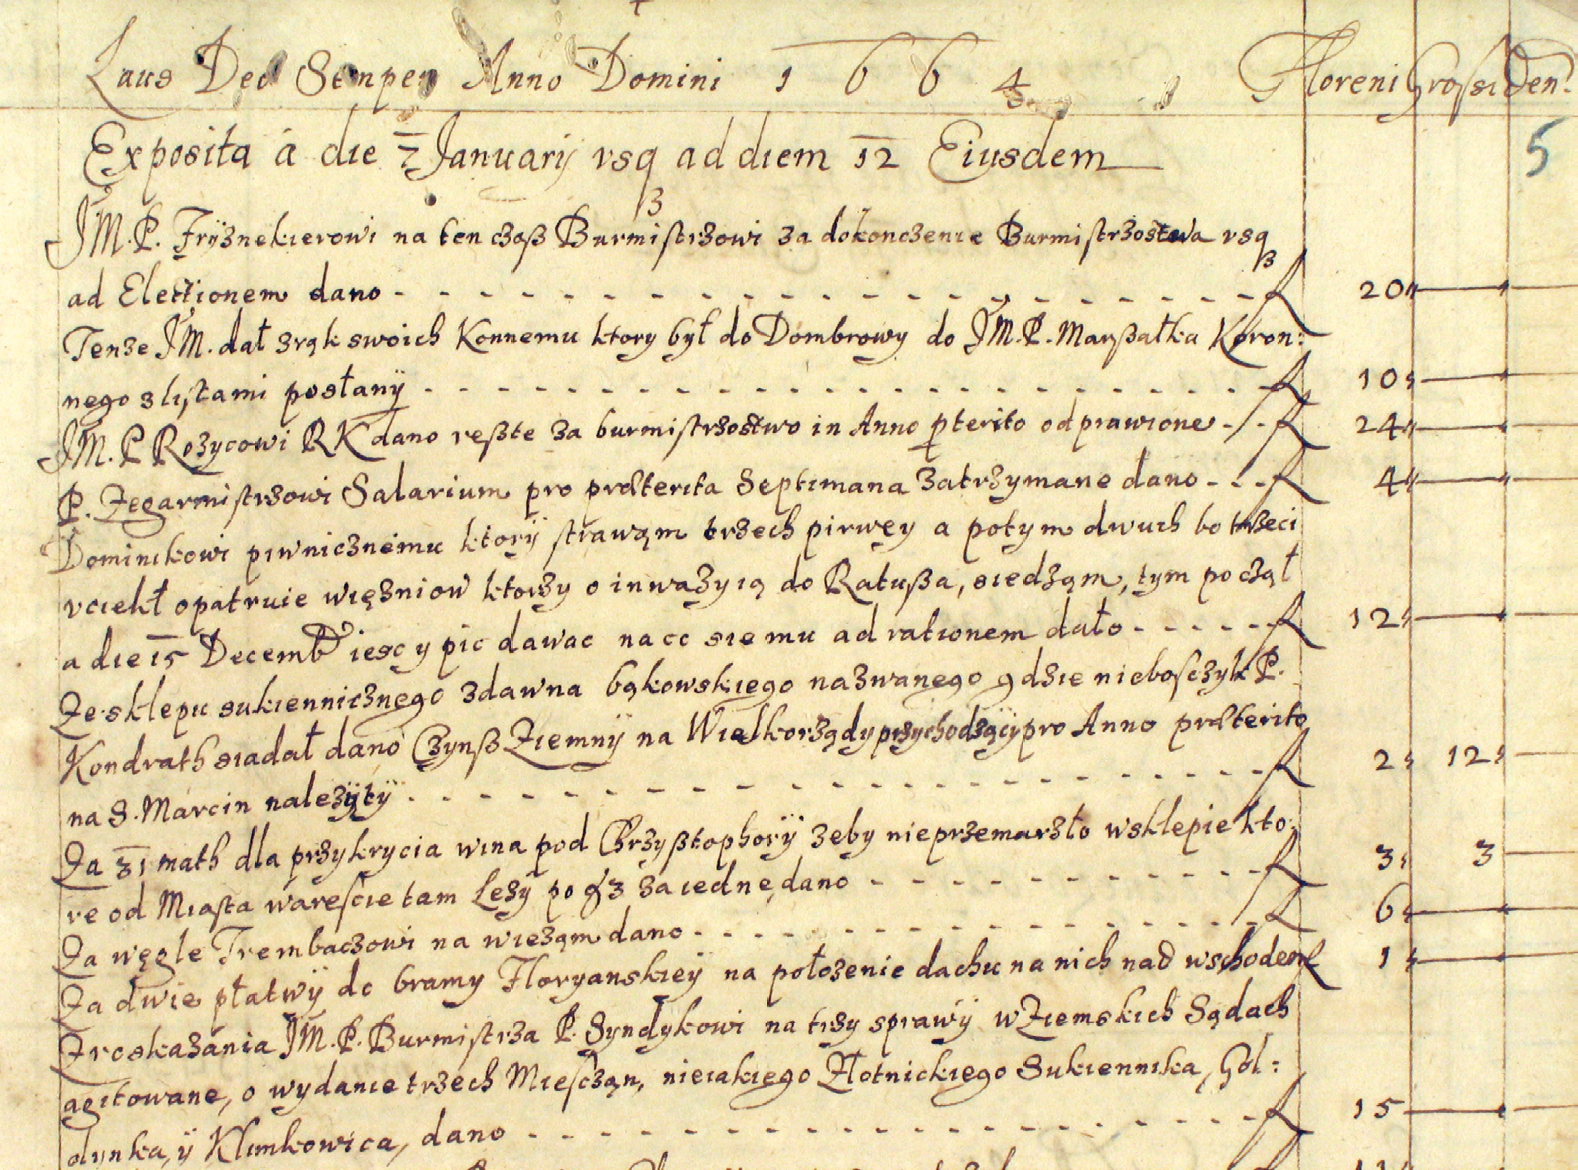 Laus Deo Semper Anno Domini 1664 Floreni Grossi Den:
5
Exposita á die 7 Januarij vsq3 ad diem 12 Eiusdem
JM.P. Frÿznekierowi na ten czaß Burmistrzowi za dokonczenie Burmistrzostwa vsq3
ad Electionem dano - - - f 20
Tenze JM. dał zrąk swoich Konnemu ktory był do Dombrowy do JM.P. Marßałka Koron:
nego z listami posłanÿ - - - f 10
JM.P Rozycowi RK dano reßte za burmistrzostwo in Anno pterito odprawione - - f 24
P. Zegarmistrzowi Salarium pro præterita Septimana zatrzymane dano - - - f 4
Dominikowi piwnicznemu ktorÿ strawąm trzech pirwey a potym dwuch bo trzeci
vciekł opatruie więzniow ktorzy o inwazyią do Ratußa, siedząm, tym począł
a die 15 Decemb iesc y pic dawac na co sie mu ad rationem dało - - - f 12
Ze sklepu sukiennicznego zdawna bąkowskiego nazwanego gdzie niebosczyk P.
Kondrath siadał dano Czynß Ziemnÿ na Wielkorządy przychodzącÿ pro Anno præterito
na S. Marcin nalezÿtÿ - - - f 2 12
Za 31 math dla przykrycia wina pod Chrzyßtophorÿ zeby nieprzemarzło wsklepie kto:
re od Miasta wareście tam Lezy po g 3 za iednę dano - - - f 3 3
Za węgle Trembaczowi na wieząm dano - - - f 6
Za dwie płatwÿ do bramy Floryanskieÿ na połozenie dachu na nich nad wschodem f 1
Zroskazánia JM.P. Burmistrza P. Syndykowi na trzy sprawÿ w Ziemskich Sądach
agitowane, o wydanie trzech Miescząn, nieiakiego Złotnickiego Sukiennika, Gol:
dynka, ÿ Klimkowica, dano - - - f 15